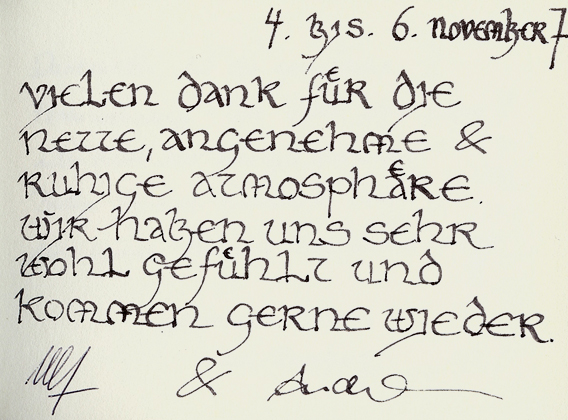 4. bis 6. november 7
vielen dank für die
nette, angenehme &
ruhige atmosphäre.
wir haben uns sehr
wohl gefühlt und
kommen gerne wieder.
Ulf &